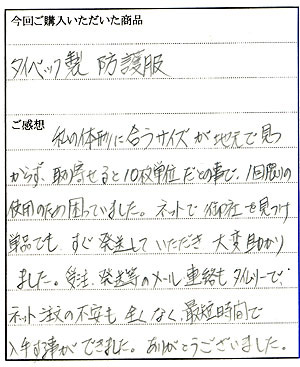 今回ご購入いただいた商品
タイベック製 防護服
ご感想
私の体形に合うサイズが地元で見つ
からず、取寄せると10枚単位だとの事で、1回限りの
使用のため困っていました。ネットで御社を見つけ
単品でも、すぐ発送していただき 大変助かり
ました。受注、発送等のメール連絡もタイムリーで、
ネット注文の不安も全くなく、最短時間で
入手する事ができました。ありがとうございました。